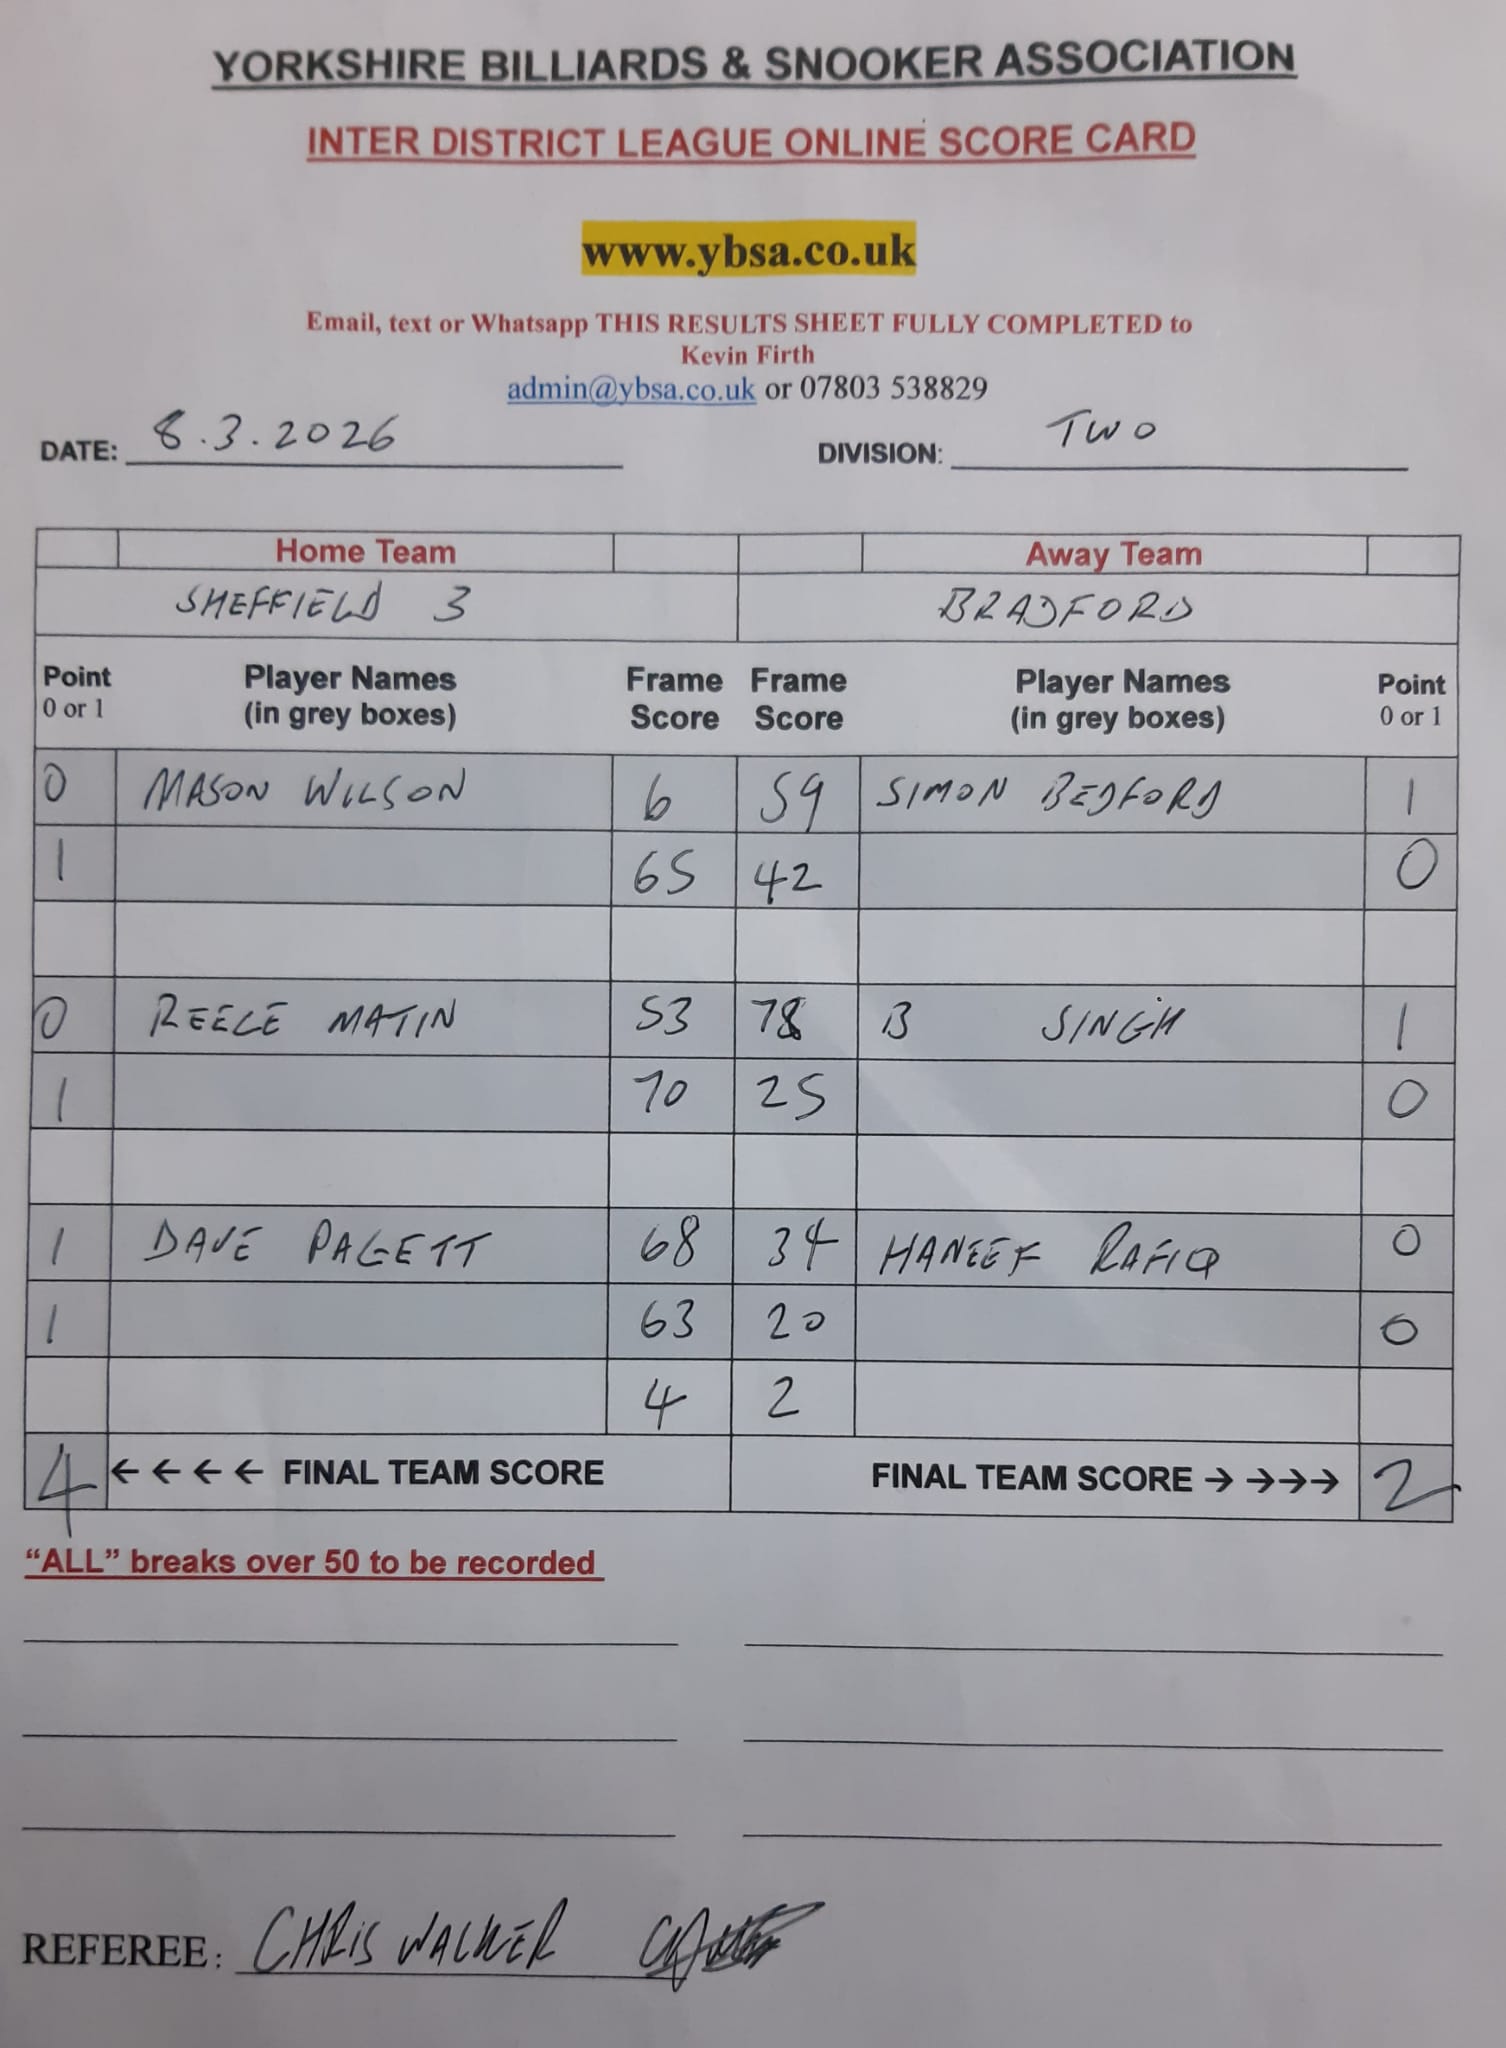 YORKSHIRE BILLIARDS & SNOOKER ASSOCIATION
INTER DISTRICT LEAGUE ONLINE SCORE CARD
www.ybsa.co.uk
Email, text or Whatsapp THIS RESULTS SHEET FULLY COMPLETED to
Kevin Firth
admin@ybsa.co.uk or 07803 538829
DATE: 8.3.2026 DIVISION: TWO
Home Team Away Team
SHEFFIELD 3 BRADFORD
Point Player Names Frame Frame Player Names Point
0 or 1 (in grey boxes) Score Score (in grey boxes) 0 or 1
0 MASON WILSON 6 59 SIMON BEDFORD 1
1 65 42 0
0 REECE MATIN 53 78 B SINGH 1
1 70 25 0
1 DAVE PAGETT 68 34 HANEEF RAFIQ 0
1 63 20 0
4 2
4 ←←←← FINAL TEAM SCORE FINAL TEAM SCORE → →→→ 2
“ALL” breaks over 50 to be recorded
REFEREE: CHRIS WALKER